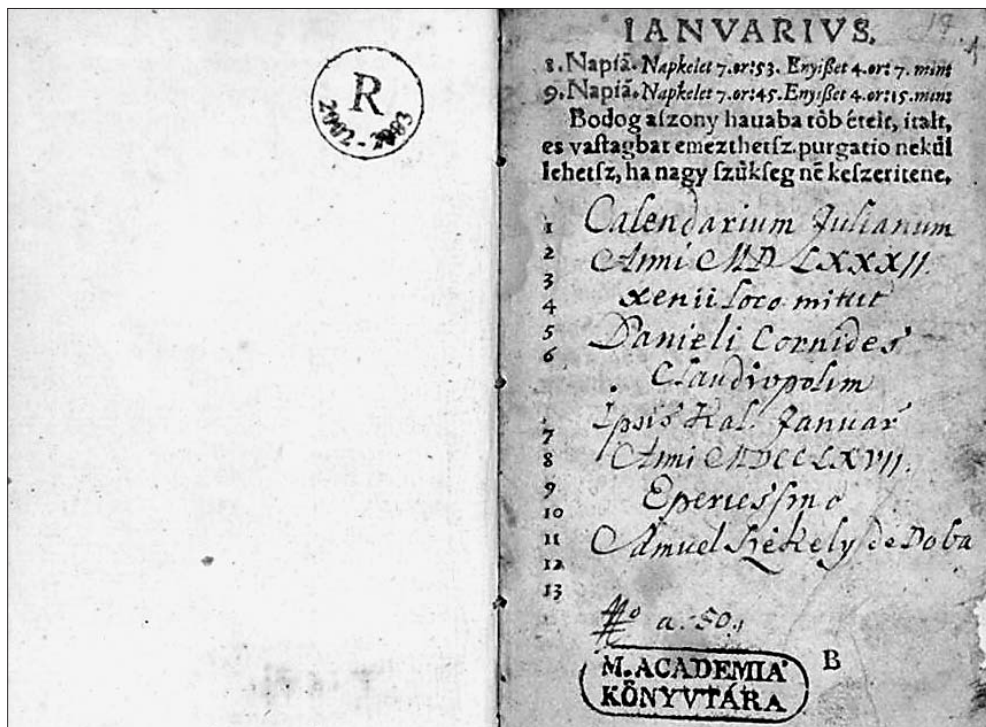 R
2002-
IANVARIVS.
8. Napiā. Napkelet 7. or: 53. Enyißet 4. or: 7. min:
9. Napiā. Napkelet 7. or: 45. Enyißet 4. or: 15. min:
Bodog aſzony hauaba tôb êtelt, italt,
es vaſtagbat emezthetſz. purgatio nekûl
lehetſz, ha nagy ſzûkſeg nē keſzeritene.
1 Calendarium Julianum
2 Anni MDLXXXII.
3
4 xenii loco mittit
5 Danieli Cornides
6
Claudiopolim
7 Ipsis Kal. Januar
8 Anni MDCCLXVII.
9
10 Eperiessino
11 Samuel Székely de Doba
12
13
a. 50.
B
M. ACADEMIA
KÖNYVTÁRA